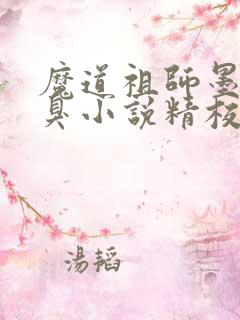 魔道祖師墨
臭小說精校
湯韜